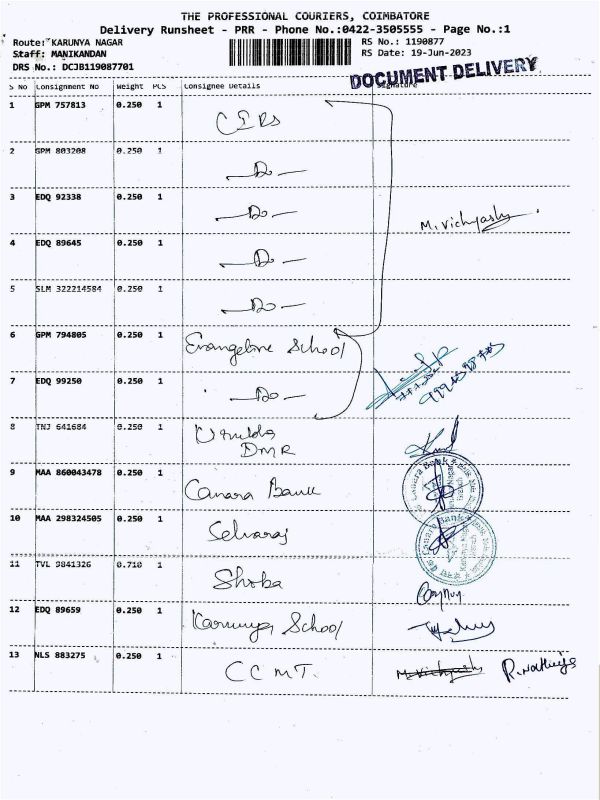 THE PROFESSIONAL COURIERS, COIMBATORE
Delivery Runsheet - PRR - Phone No.:0422-3505555 - Page No.:1
Route: KARUNYA NAGAR RS No.: 1190877
Staff: MANIKANDAN RS Date: 19-Jun-2023
DRS No.: DCJB119087701
DOCUMENT DELIVERY
S No Consignment No Weight PCS Consignee Details Signature
1 GPM 757813 0.250 1
2 GPM 803208 0.250 1 -Do-
3 EDQ 92338 0.250 1 -Do- M. Vichyashy
4 EDQ 89645 0.250 1 -Do-
5 SLM 322214584 0.250 1 -Do-
6 GPM 794805 0.250 1 Evangeline School
7 EDQ 99250 0.250 1 -Do-
8 TNJ 641684 0.250 1
DMR
9 MAA 860043478 0.250 1 Canara Bank
Canara Bank
10 MAA 298324505 0.250 1 Selvaraj
Canara Bank
11 TVL 3841326 0.710 1 Shoba
12 EDQ 89659 0.250 1 Karunya School
13 NLS 883275 0.250 1 CCMT.